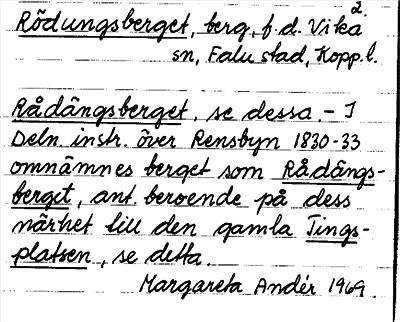 2.
Rödungsberget, berg, f.d. Vika
sn, Falu stad, Kopp. l.
Rådängsberget, se dessa. - I
Deln. instr. över Rensbyn 1830-33
omnämnes berget som Rådängs-
berget, ant. beroende på dess
närhet till den gamla Tings-
platsen, se detta.
Margareta Andér 1969.